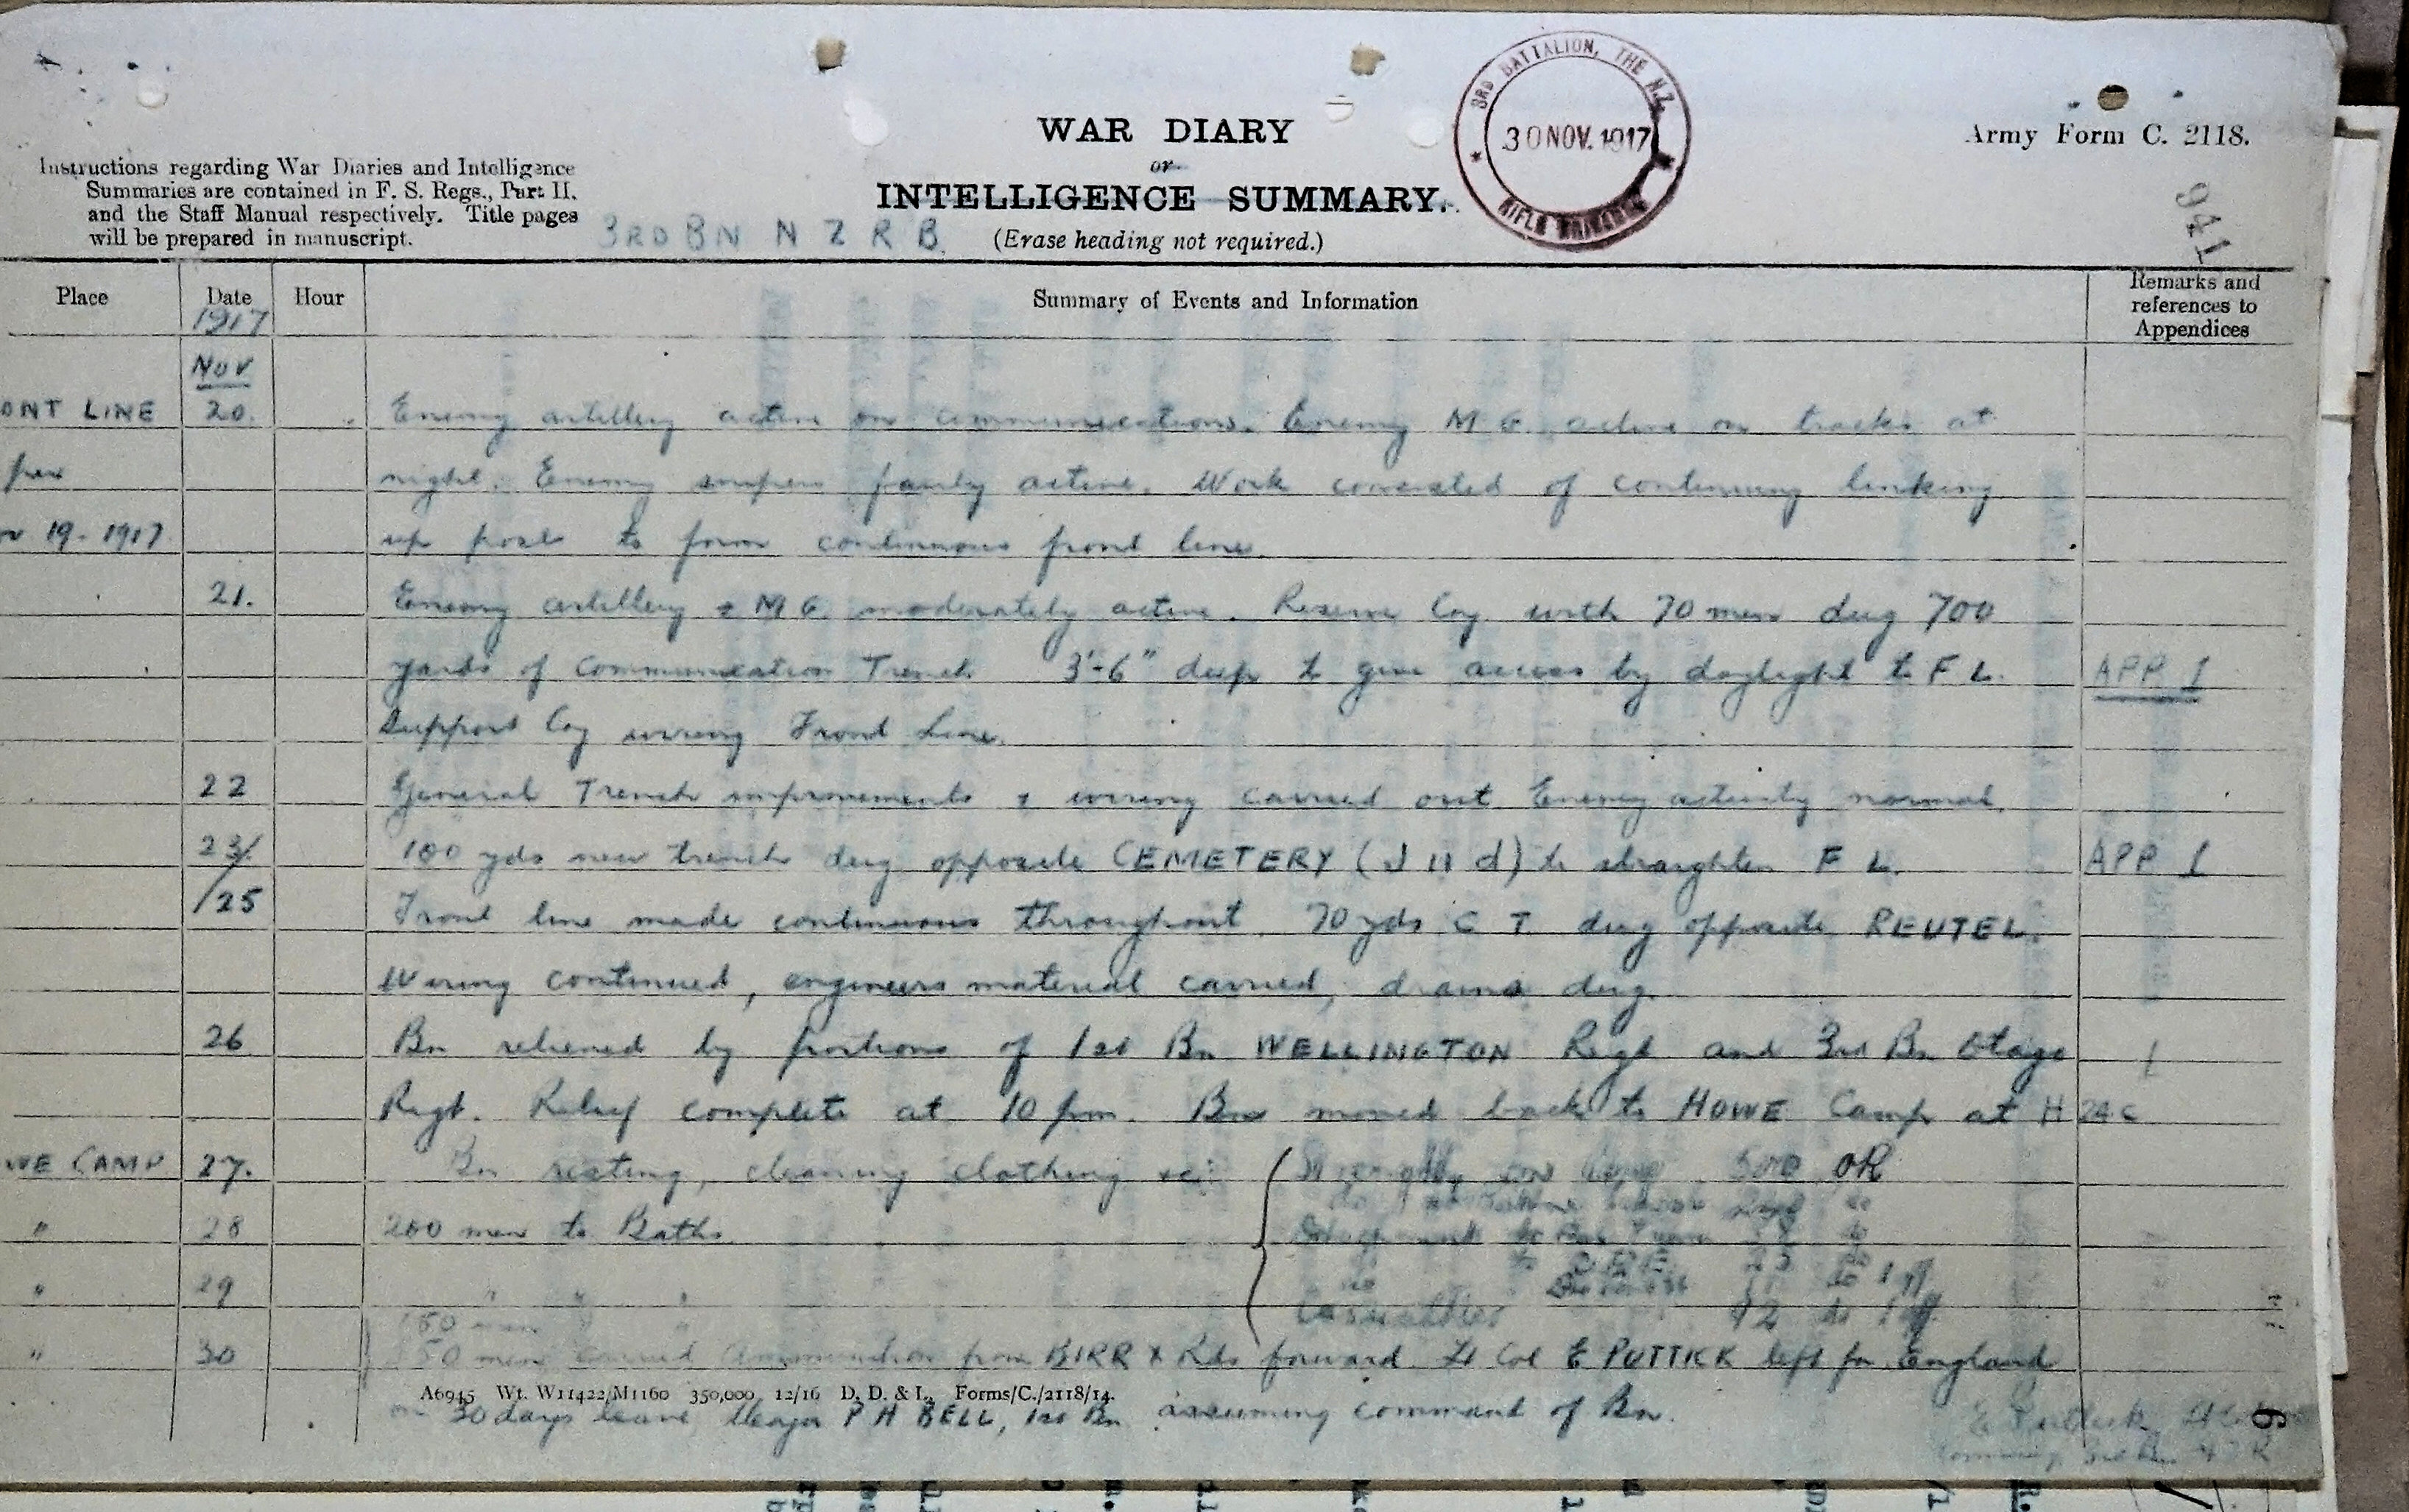 WAR DIARY
or
INTELLIGENCE SUMMARY.
(Erase heading not required.)
3RD BATTALION, THE N.Z. RIFLE BRIGADE
30 NOV. 1917
Army Form C. 2118.
941
Instructions regarding War Diaries and Intelligence
Summaries are contained in F. S. Regs., Part II.
and the Staff Manual respectively. Title pages
will be prepared in manuscript.
3RD BN N Z R B.
Place Date Hour Summary of Events and Information Remarks and references to Appendices
1917
Nov
ONT LINE 20. Enemy artillery active on communications. Enemy M G. active on tracks at
night. Enemy snipers fairly active. Work consisted of continuing linking
19-1917 up posts to form continuous front line.
21. Enemy artillery & M G. moderately active. Reserve Coy with 70 men dug 700
yards of Communication Trench 3'-6" deep to give access by daylight to F L. APP 1
Support Coy wiring Front Line.
22 General Trench improvements & wiring carried out Enemy activity normal.
23/ 100 yds new trench dug opposite CEMETERY (J 11 d) to straighten F L. APP 1
/25 Front line made continuous throughout. 70 yds C T dug opposite REUTEL.
Wiring continued, engineers material carried, drains dug.
26 Bn relieved by portions of 1st Bn WELLINGTON Regt and 3rd Bn Otago
Regt. Relief complete at 10 pm. Bn moved back to HOWE Camp at H 24 c
WE CAMP 27. Bn resting, cleaning clothing &c. Strength in line 500 OR
" 28 200 men to Baths.
" 29 " " "
Casualties
150 men "
" 30 50 men carried ammunition from BIRR X Rds forward. Lt Col E PUTTICK left for England
A6945 Wt. W11422/M1160 350,000 12/16 D. D. & L. Forms/C./2118/14.
on 30 days leave Major P H BELL, 1st Bn assuming command of Bn.
E Puttick Lt Col
3rd Bn
6